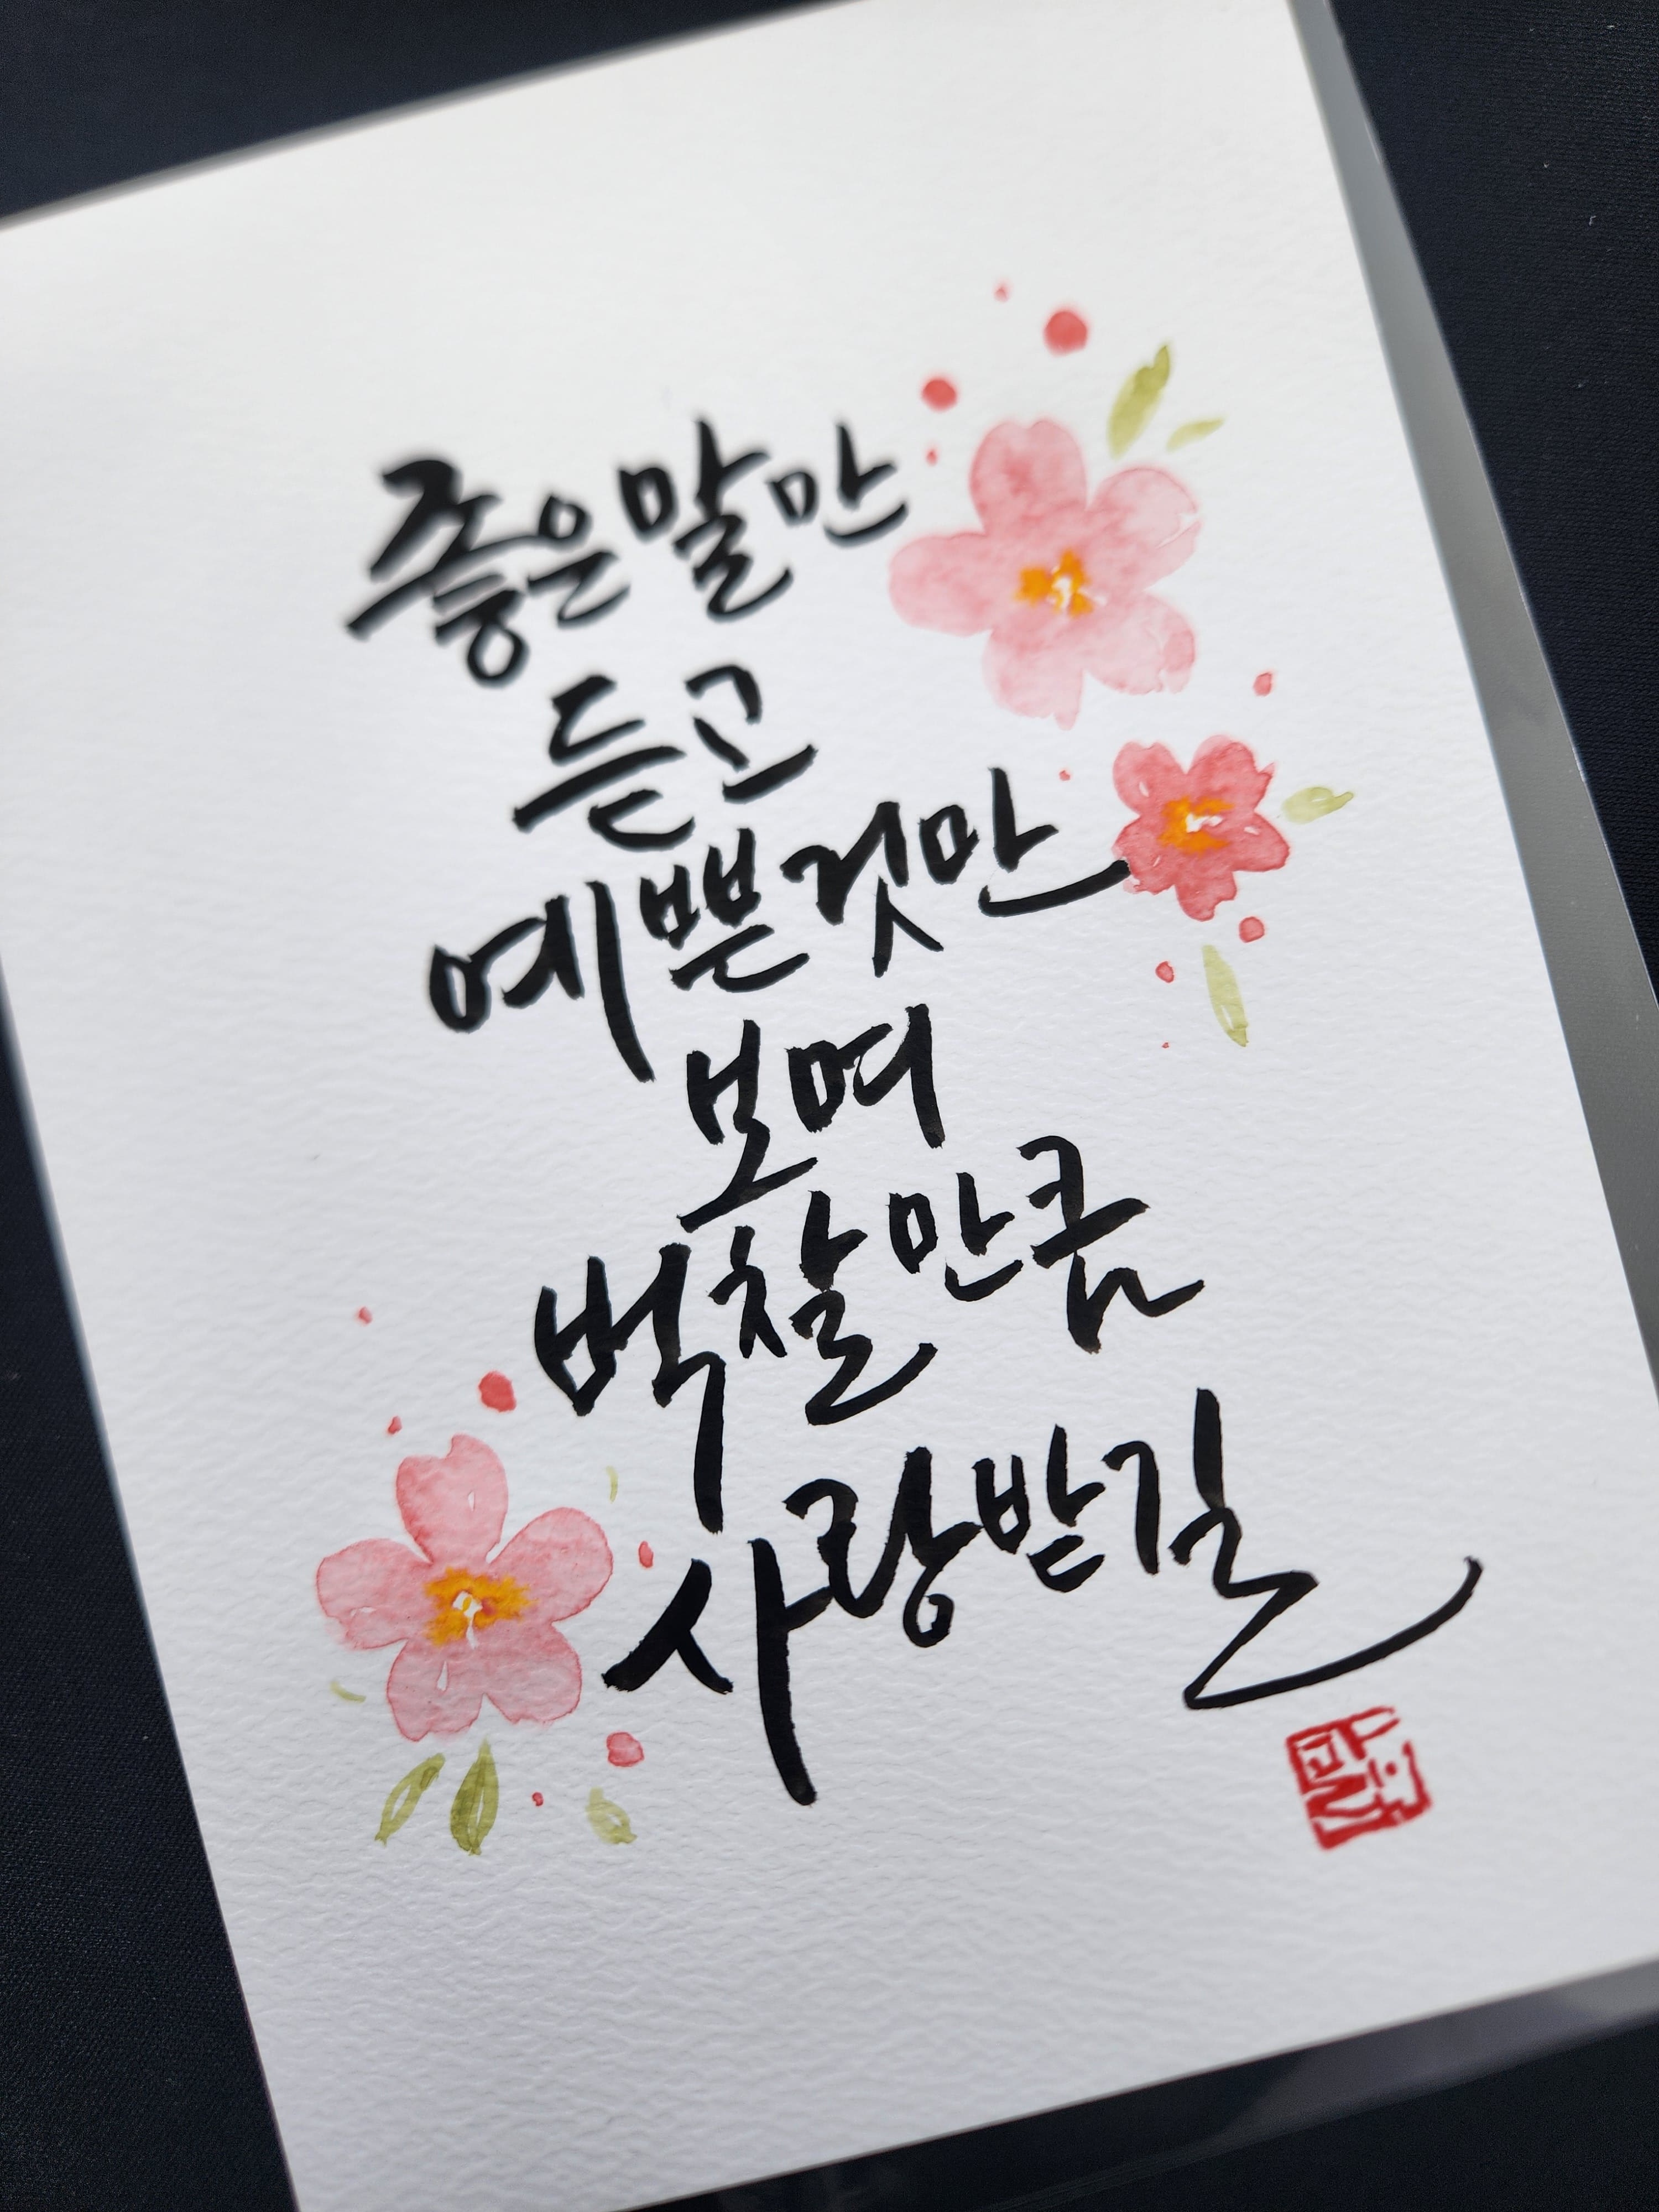 좋은 말만
듣고
예쁜 것만
보며
벅찰 만큼
사랑받길